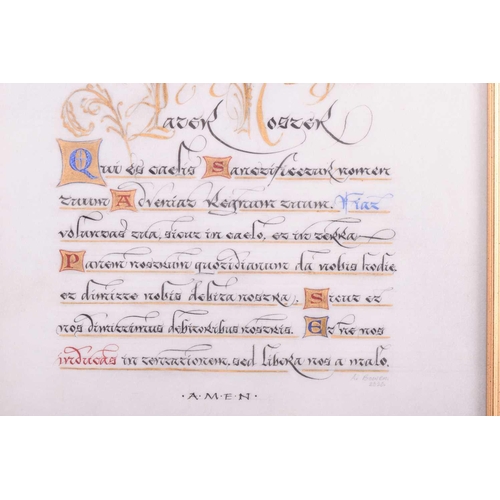 Pater Noster
Qui es caelis Sanctificetur nomen
tuum Adveniat Regnum tuum. Fiat
voluntas tua, sicut in caelo, et in terra
Panem nostrum quotidianum da nobis hodie
et dimitte nobis debita nostra; Sicut et
nos dimittimus debitoribus nostris. Et ne nos
inducas in tentationem. sed libera nos a malo.
·A·M·E·N·